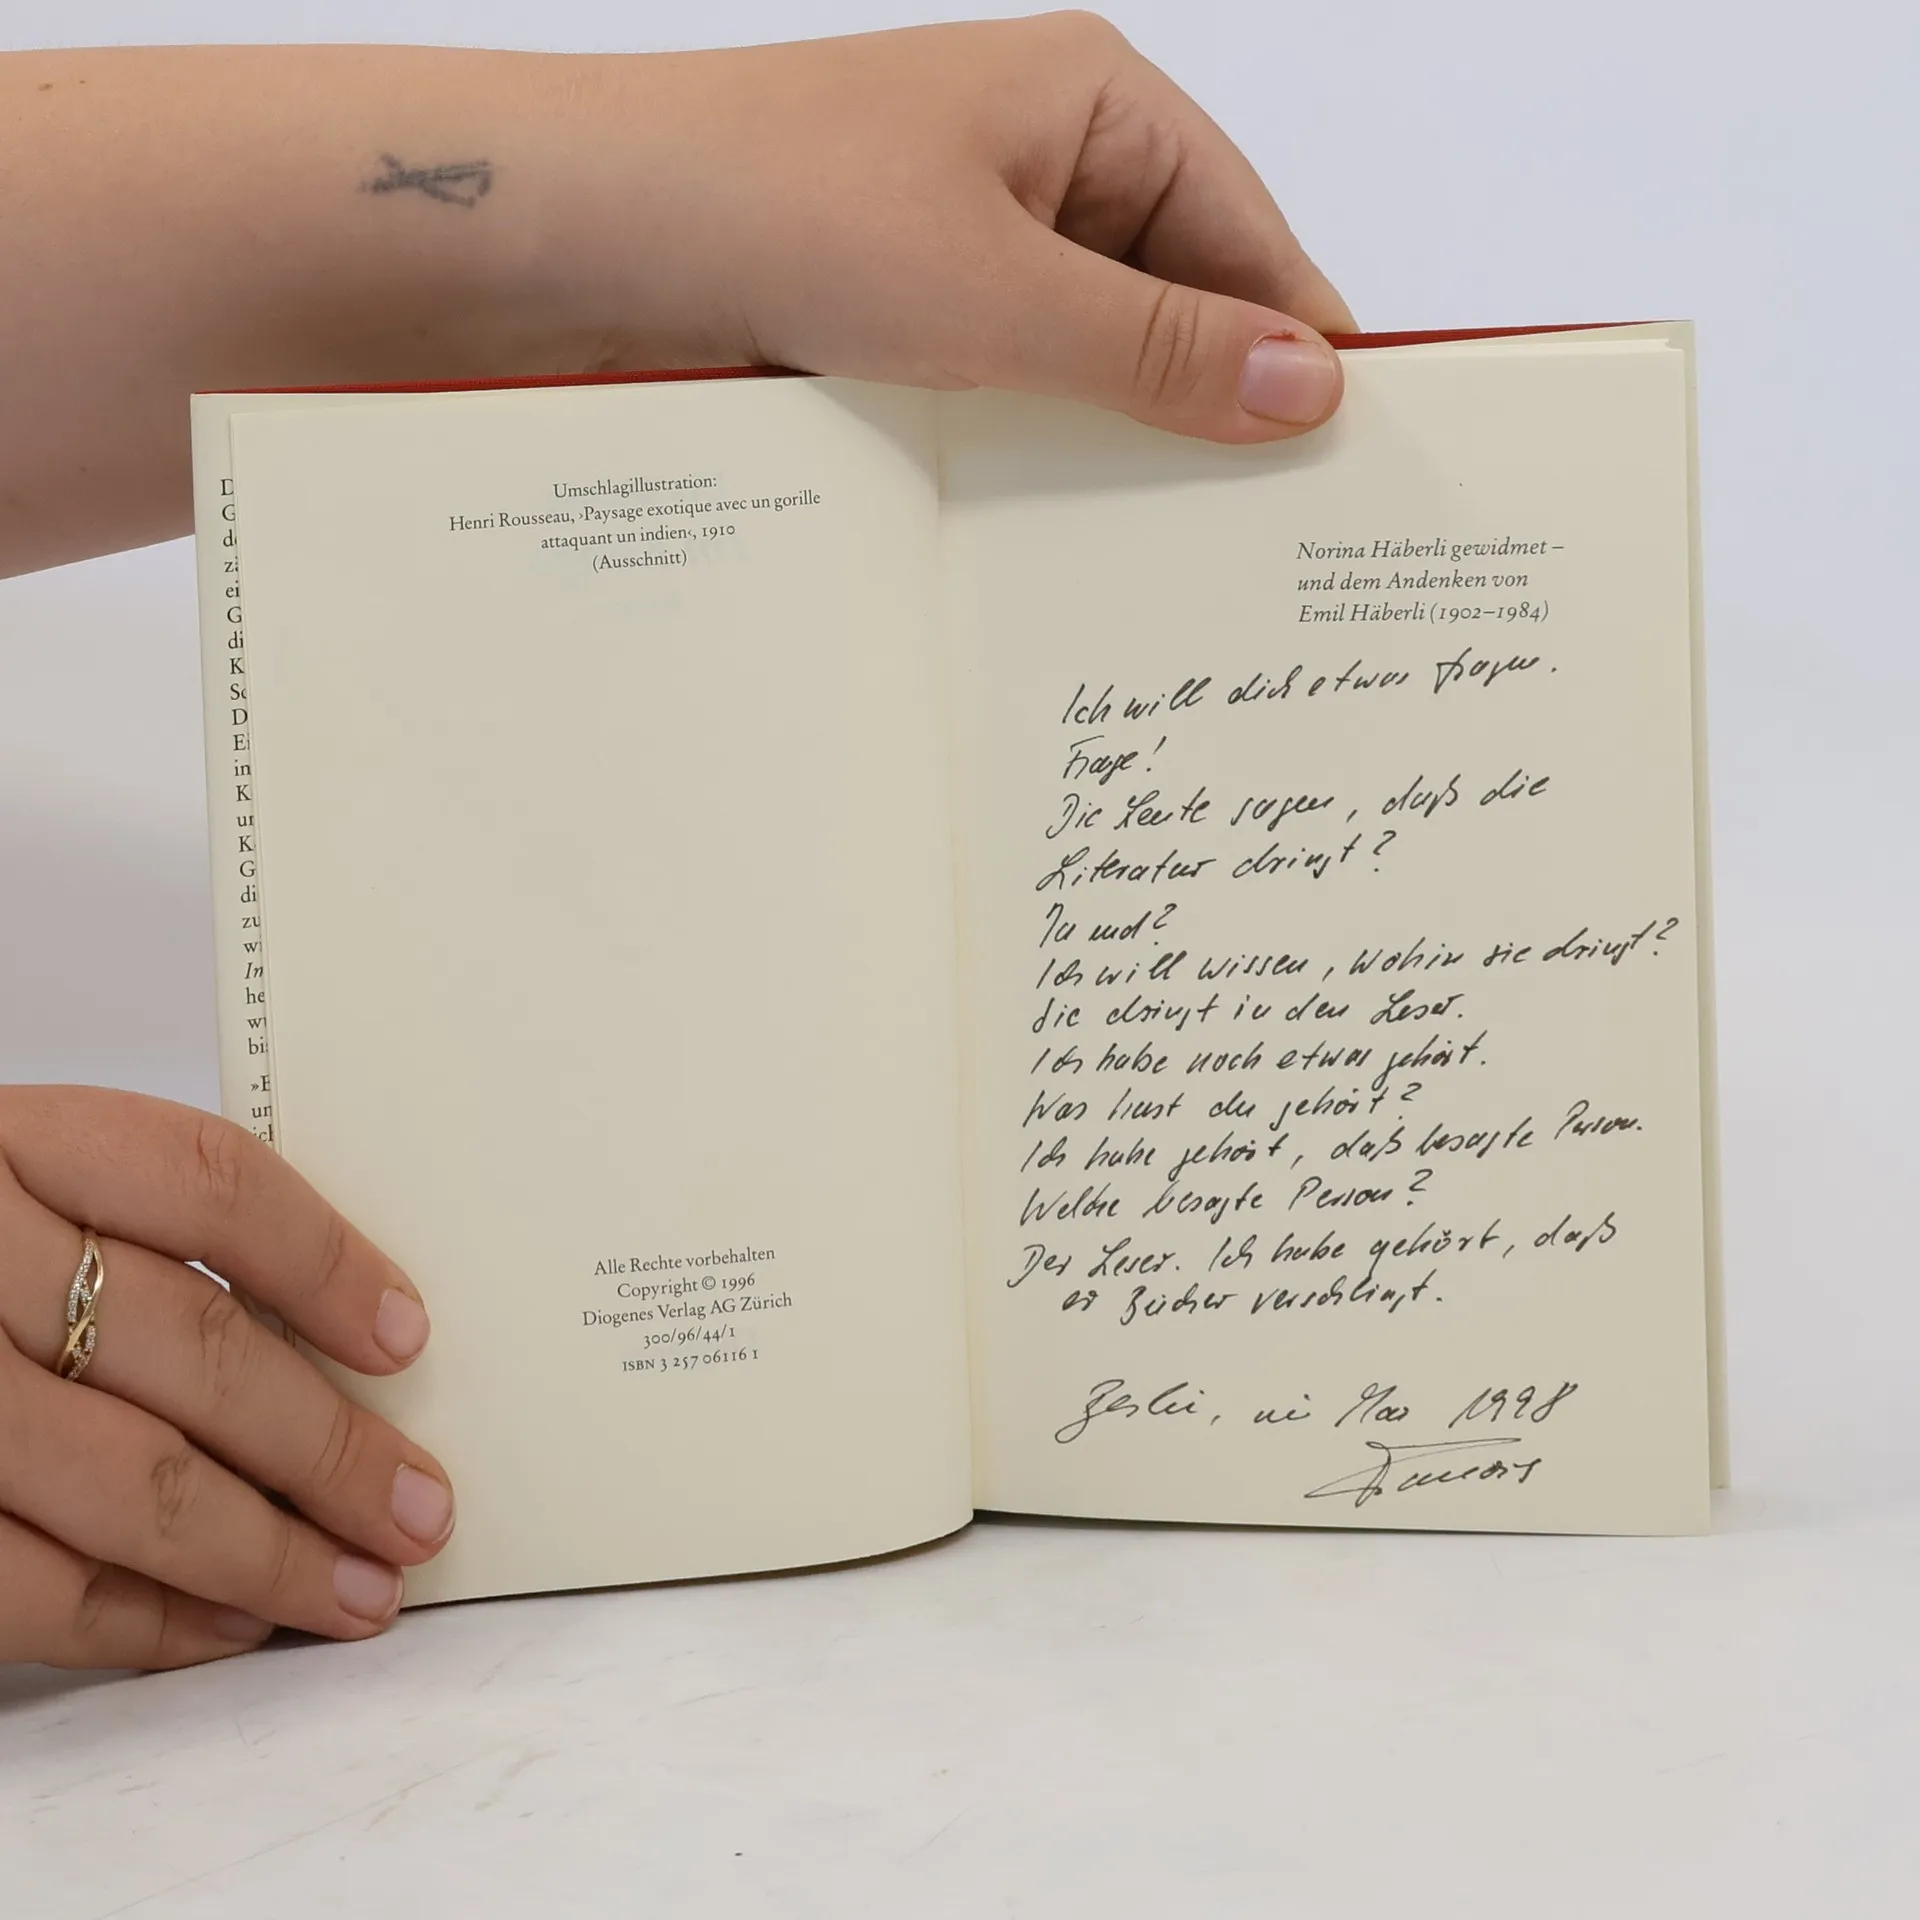 Umschlagillustration:
Henri Rousseau, ›Paysage exotique avec un gorille
attaquant un indien‹, 1910
(Ausschnitt)
Alle Rechte vorbehalten
Copyright © 1996
Diogenes Verlag AG Zürich
300/96/44/1
ISBN 3 257 06116 1
Norina Häberli gewidmet –
und dem Andenken von
Emil Häberli (1902–1984)
Ich will dich etwas fragen.
Frage!
Die Leute sagen, daß die
Literatur dringt?
Ja und?
Ich will wissen, wohin sie dringt?
Sie dringt in den Leser.
Ich habe noch etwas gehört.
Was hast du gehört?
Ich habe gehört, daß besagte Person.
Welche besagte Person?
Der Leser. Ich habe gehört, daß
er Bücher verschlingt.
Berlin, im Mai 1998